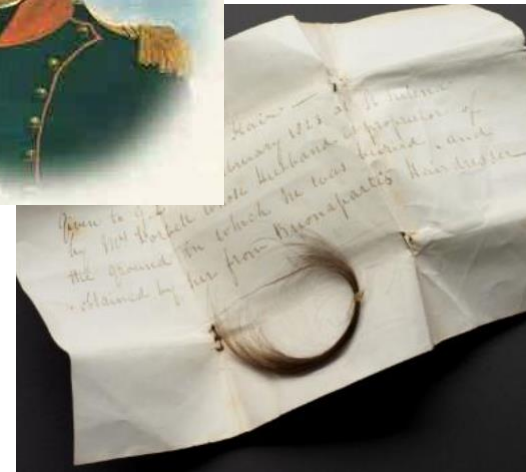 Hair —
January 1828 at St Helena
Given to
by Mrs Torbett whose Husband is proprietor of
the ground in which he was buried, and
obtained by her from Buonaparte's Hairdresser